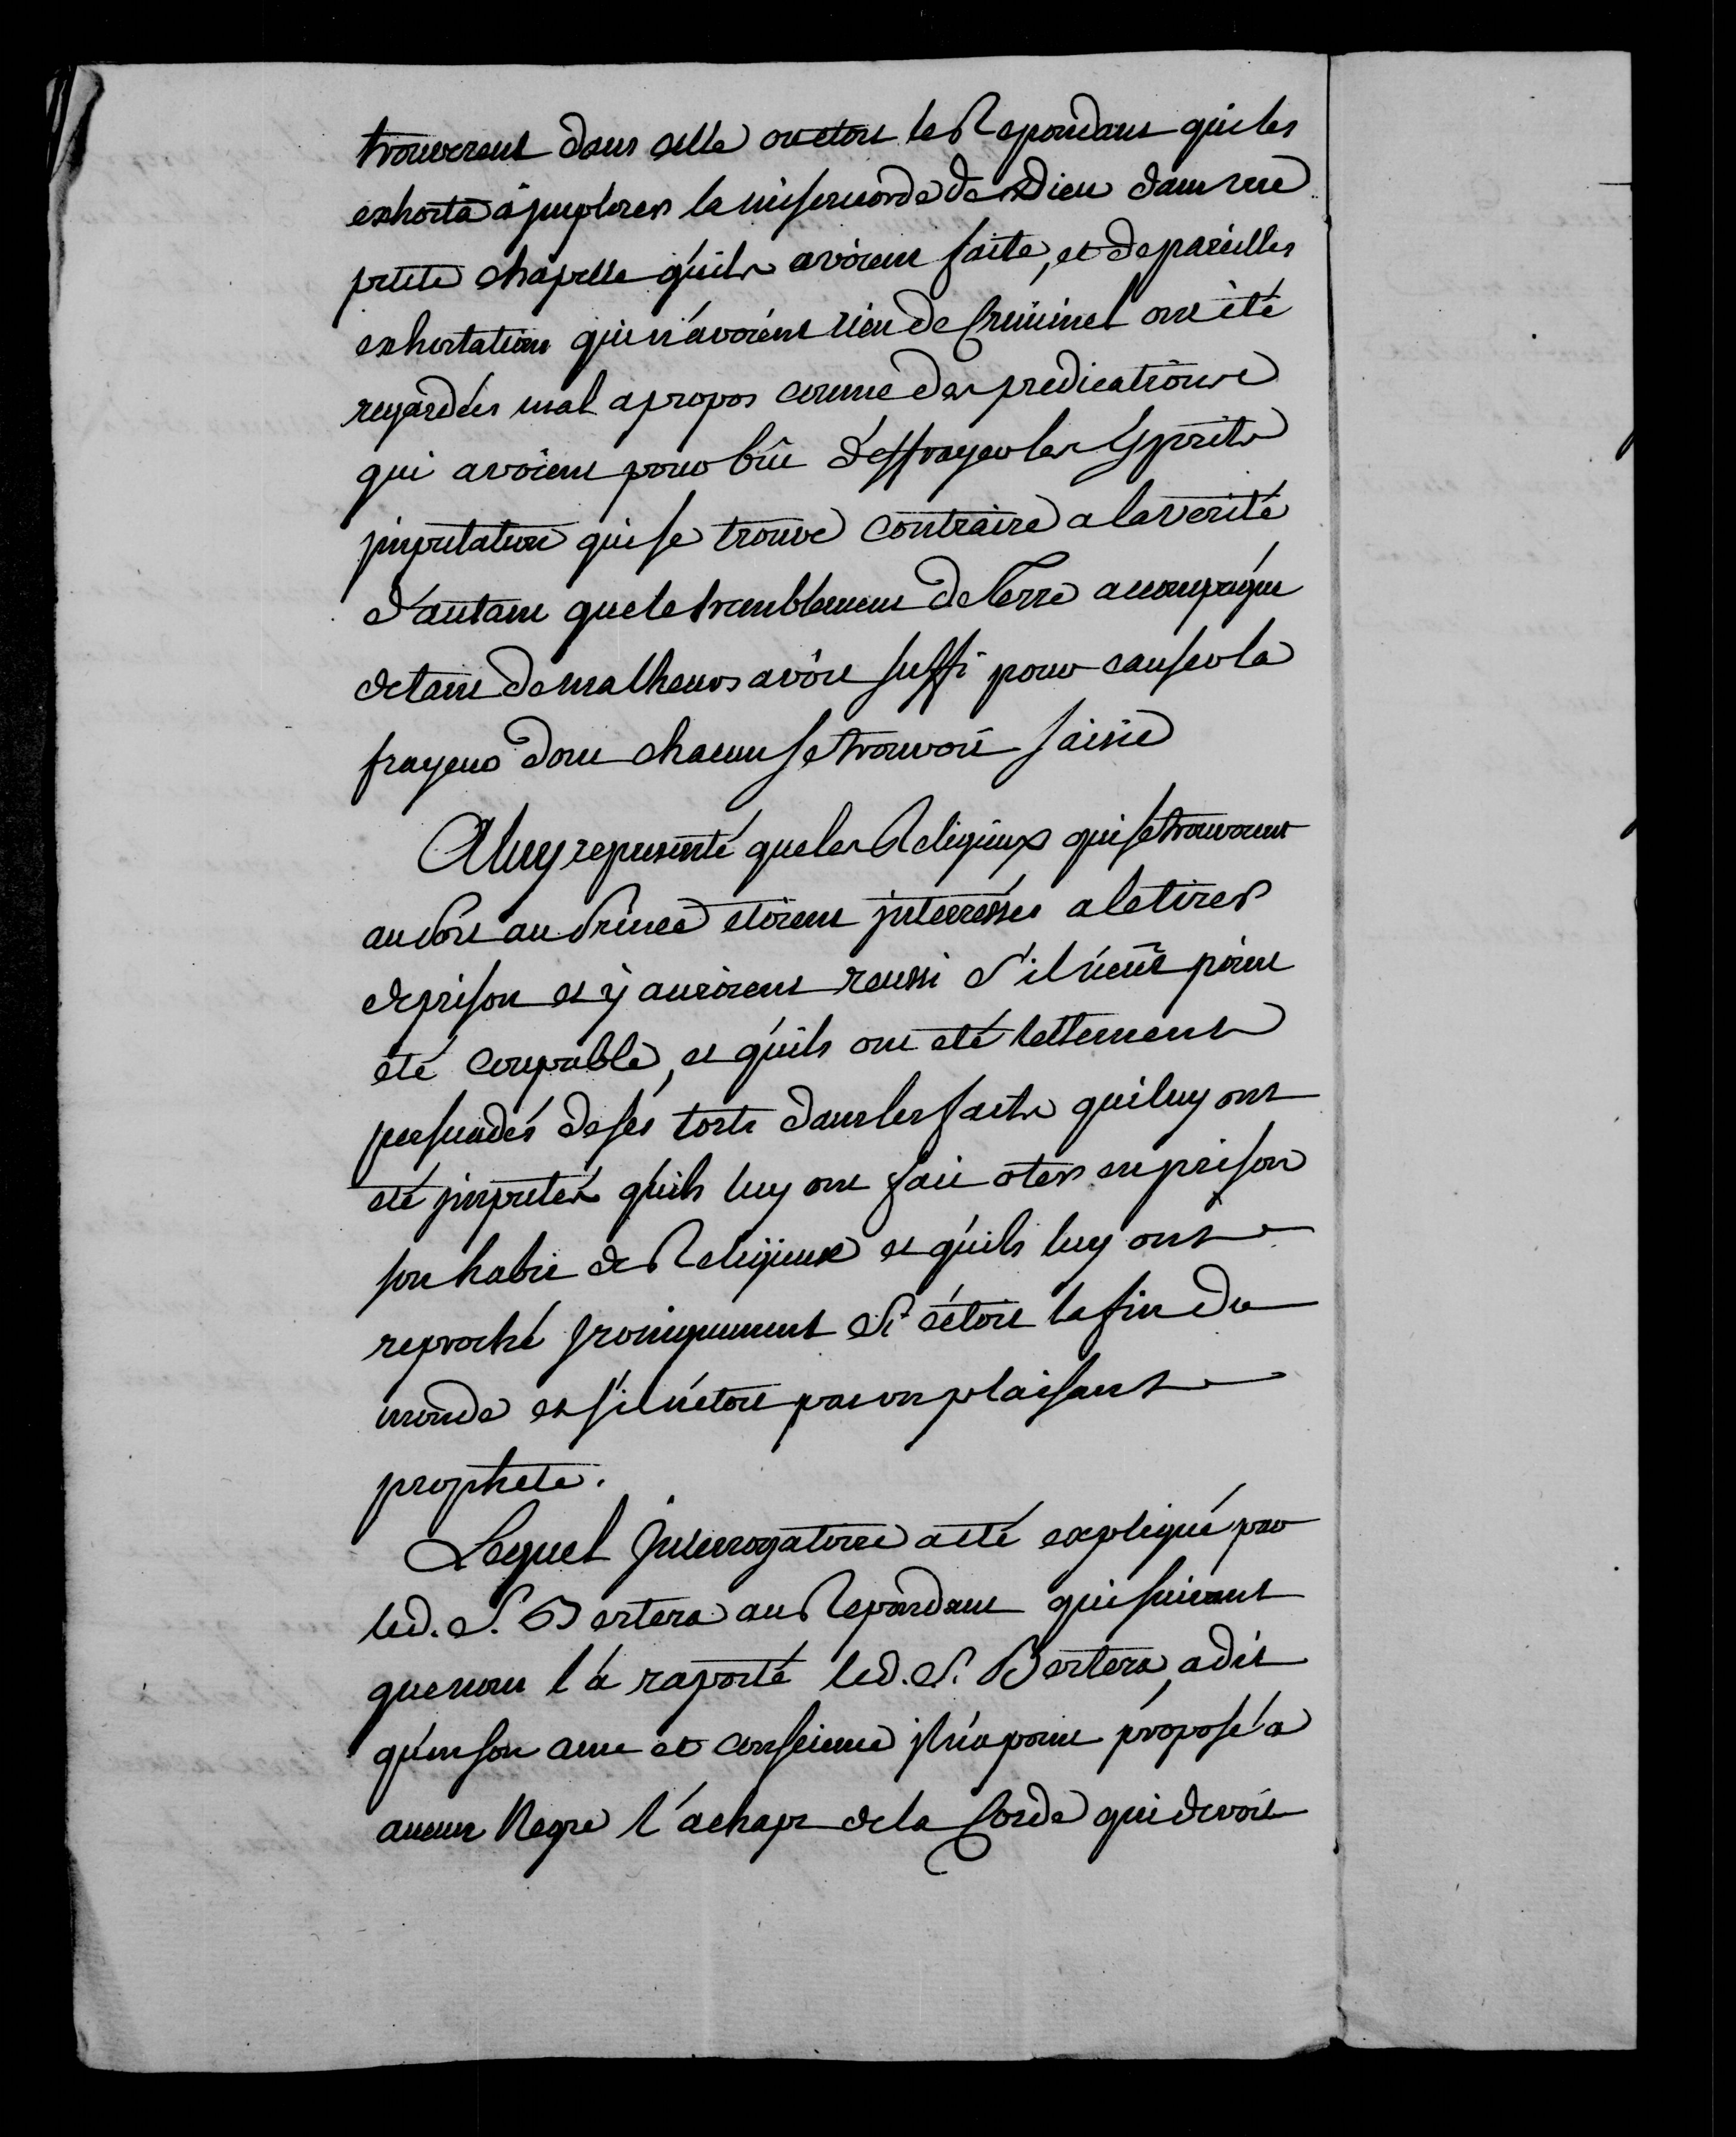 trouverent dans celle ou etoit le Repondant qui les
exhorta a jmplorer la misericorde de Dieu dans une
petite chapelle qu'ils avoient faite, et de pareilles
exhortations qui n'avoient rien de Criminel ont été
regardées mal apropos comme des predications
qui avoient pour bût d'effrayer les Esprits
jmputation qui se trouve contraire a la verité
d'autant que le tremblement de Terre accompagné
de tant de malheurs avoit suffi pour causer la
frayeur dont chacun se trouvoit saisie
A luy representé que les Religieux qui se trouvoient
au Port au Prince etoient jnterressés a le tirer
de prison et y auroient reussi s'il n'eût point
été coupable, et qu'ils ont eté tellement
persuadés de sés torts dans les faits qui luy ont
eté jmputés qu'ils luy ont fait oter en prison
son habit de Religieux et qu'ils luy ont
reproché jroniquement si c'étoit la fin du
monde et s'il n'étoit pas un plaisant
prophete.
Lequel Jnterrogatoire a eté expliqué par
led. S. Bertera au Repondant qui suivant
que nous l'a raporté led. S. Bertera, a dit
qu'en son ame et conscience jl n'a point proposé a
aucun Negre l'achapt de la Corde qui devoit